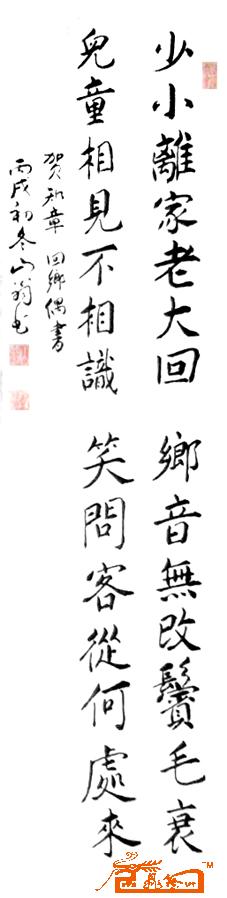 少小離家老大回 鄉音無改鬢毛衰
兒童相見不相識 笑問客從何處來
賀知章 回鄉偶書
丙戌初冬山翁书